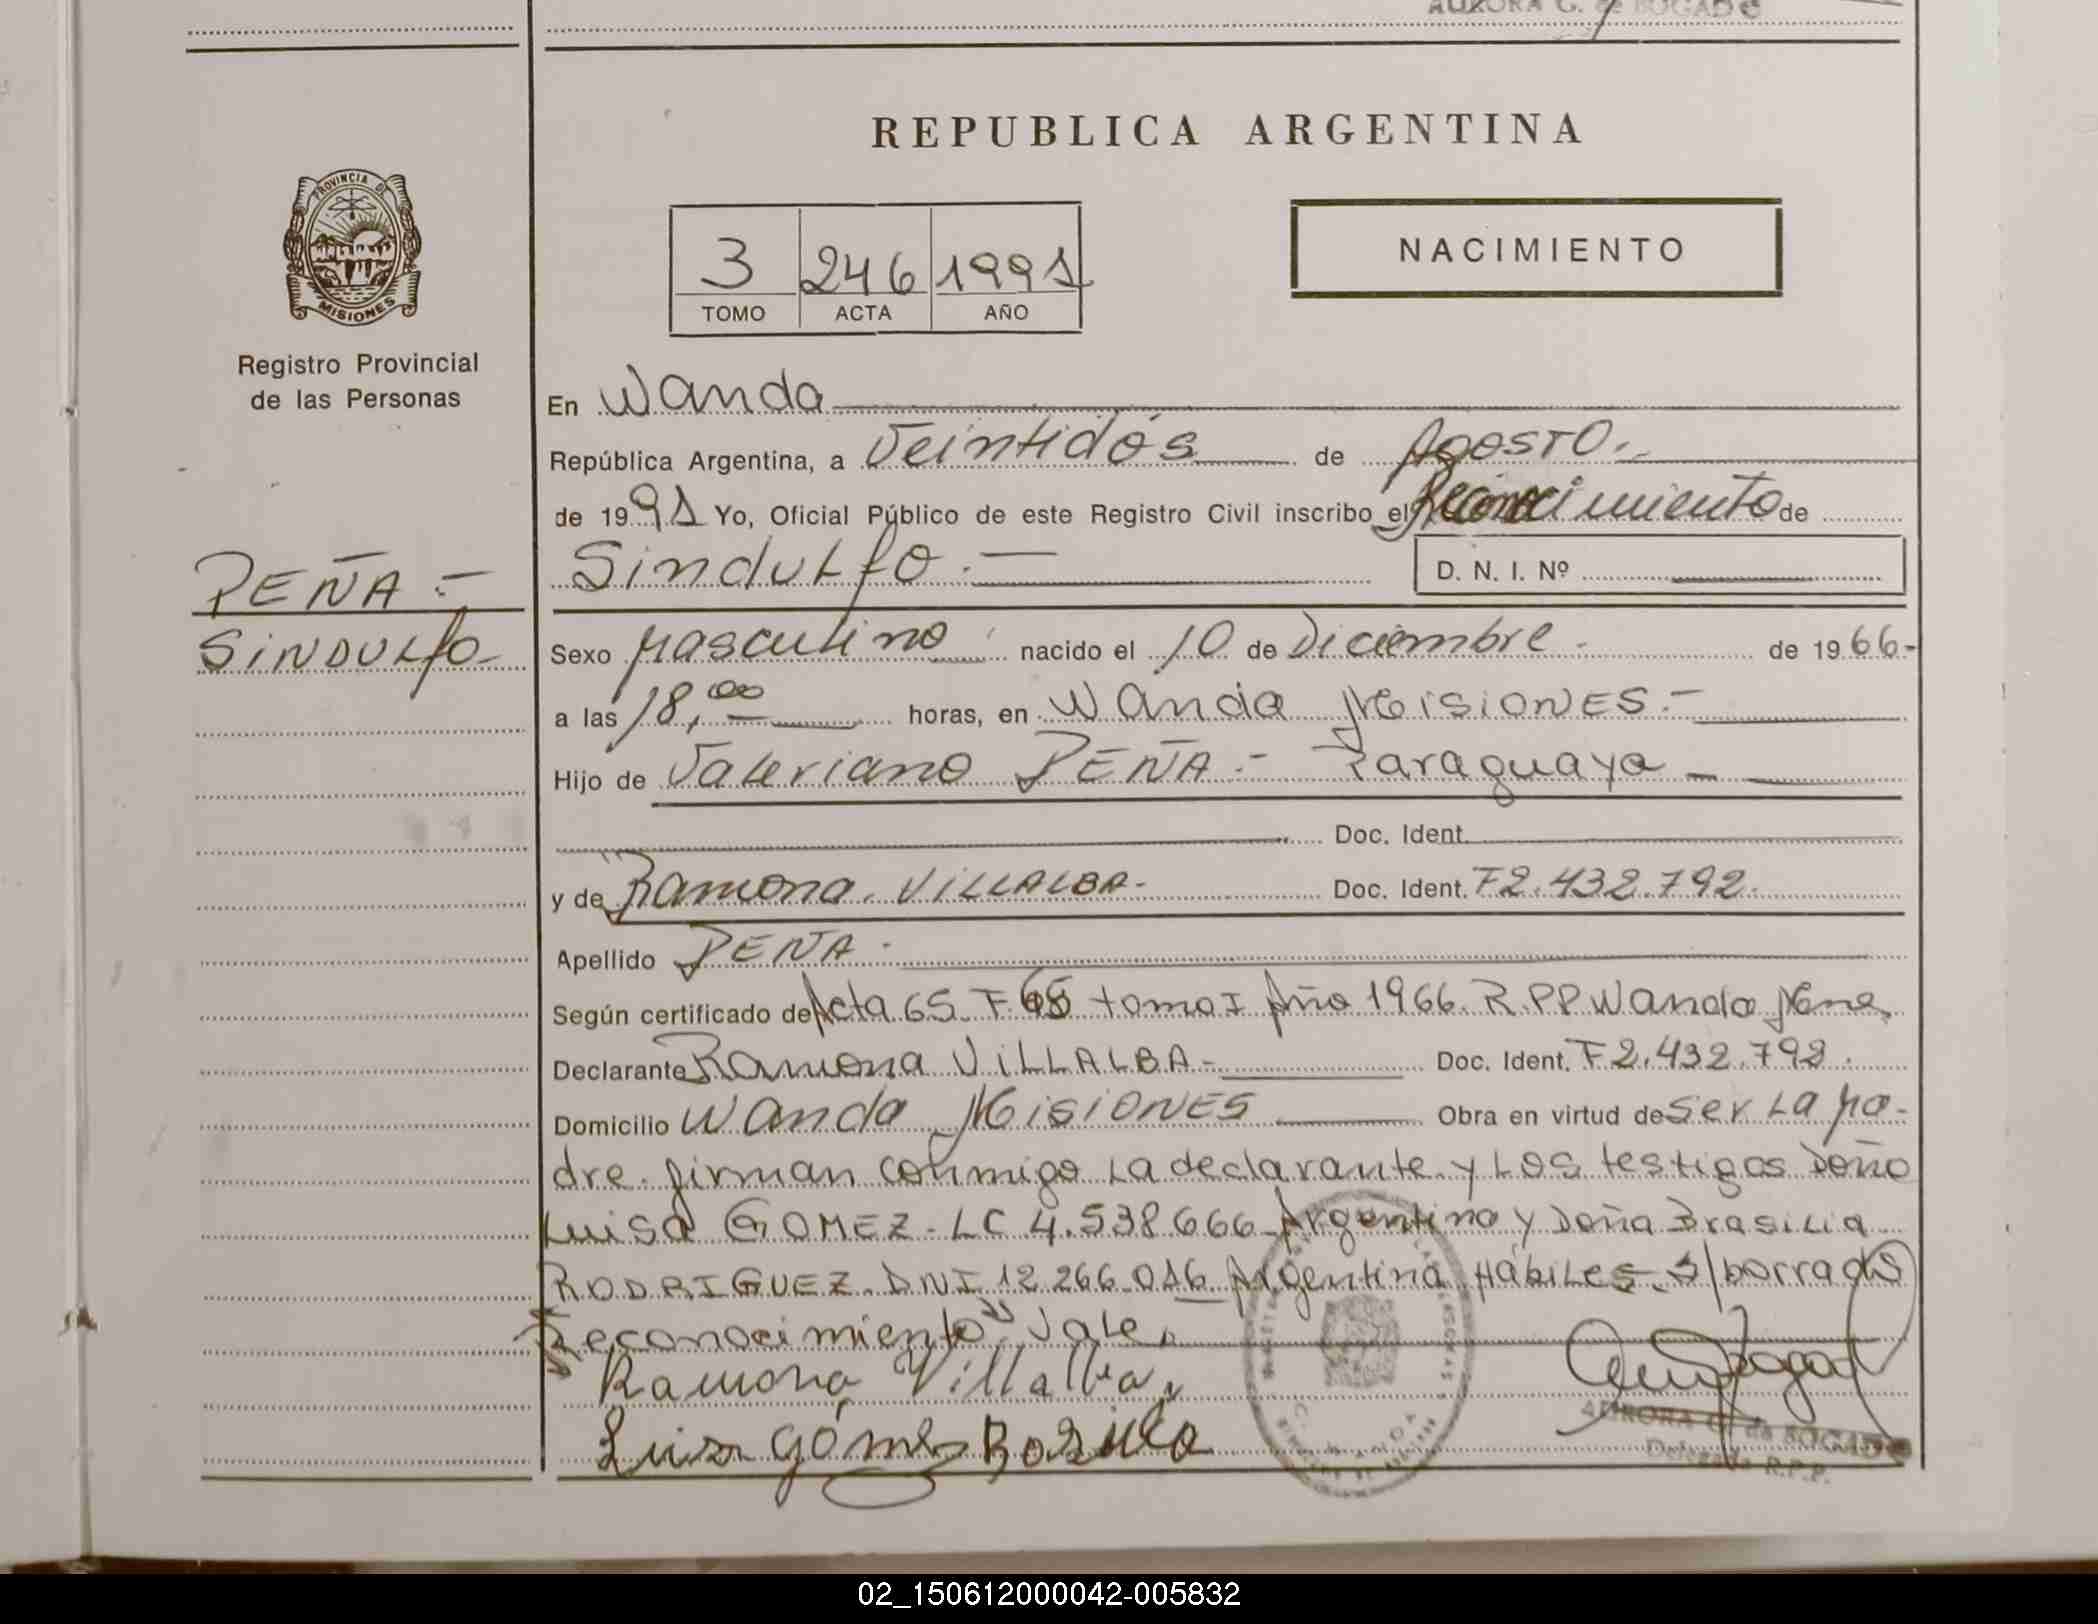 AURORA G. de BOGADO
REPUBLICA ARGENTINA
PROVINCIA DE
MISIONES
Registro Provincial
de las Personas
3 246 1991
TOMO ACTA AÑO
NACIMIENTO
En Wanda
República Argentina, a Veintidós de Agosto.
de 1991 Yo, Oficial Público de este Registro Civil inscribo el Reconocimiento de
PEÑA.-
SINDULfo
Sindulfo.-
D. N. I. Nº
Sexo Masculino nacido el 10 de Diciembre. de 1966-
a las 18,00 horas, en Wanda MISIONES.-
Hijo de Valeriano PEÑA.- Paraguaya -
Doc. Ident.
y de Ramona. VILLALBA- Doc. Ident. F2.432.792.
Apellido PEÑA.
Según certificado de Acta 65 F. 65 tomo I Año 1966. R.P.P Wanda Mnes.
Declarante Ramona VILLALBA- Doc. Ident. F2.432.792.
Domicilio Wanda MISIONES Obra en virtud de ser La Ma-
dre. firman conmigo La declarante y Los testigos Doña
Luisa GOMEZ- LC 4.538.666 Argentina y Doña Brasilia
RODRIGUEZ. DNI 12.266.016 Argentina Hábiles- S/borrado
"Reconocimiento" Vale.
Ramona Villalba
Luisa Gómes
AURORA G. de BOGADO
Delegada R.P.P.
02_150612000042-005832